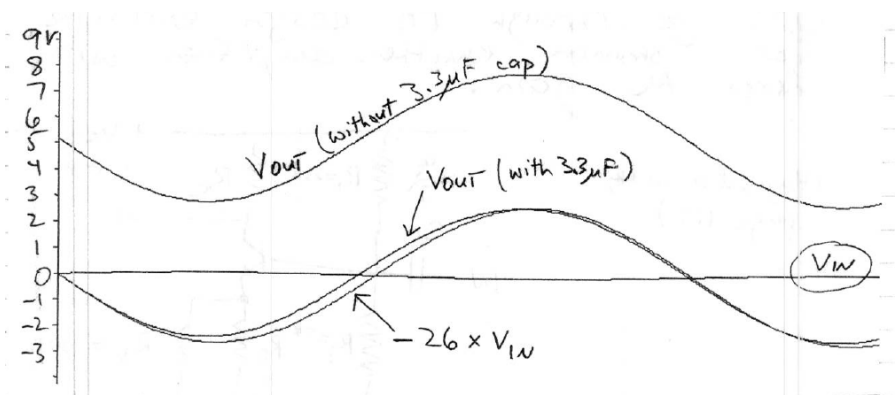 9V
8
7
6
5
4
3
2
1
0
-1
-2
-3
VOUT (without 3.3μF cap)
VOUT (with 3.3μF)
VIN
-26 × VIN